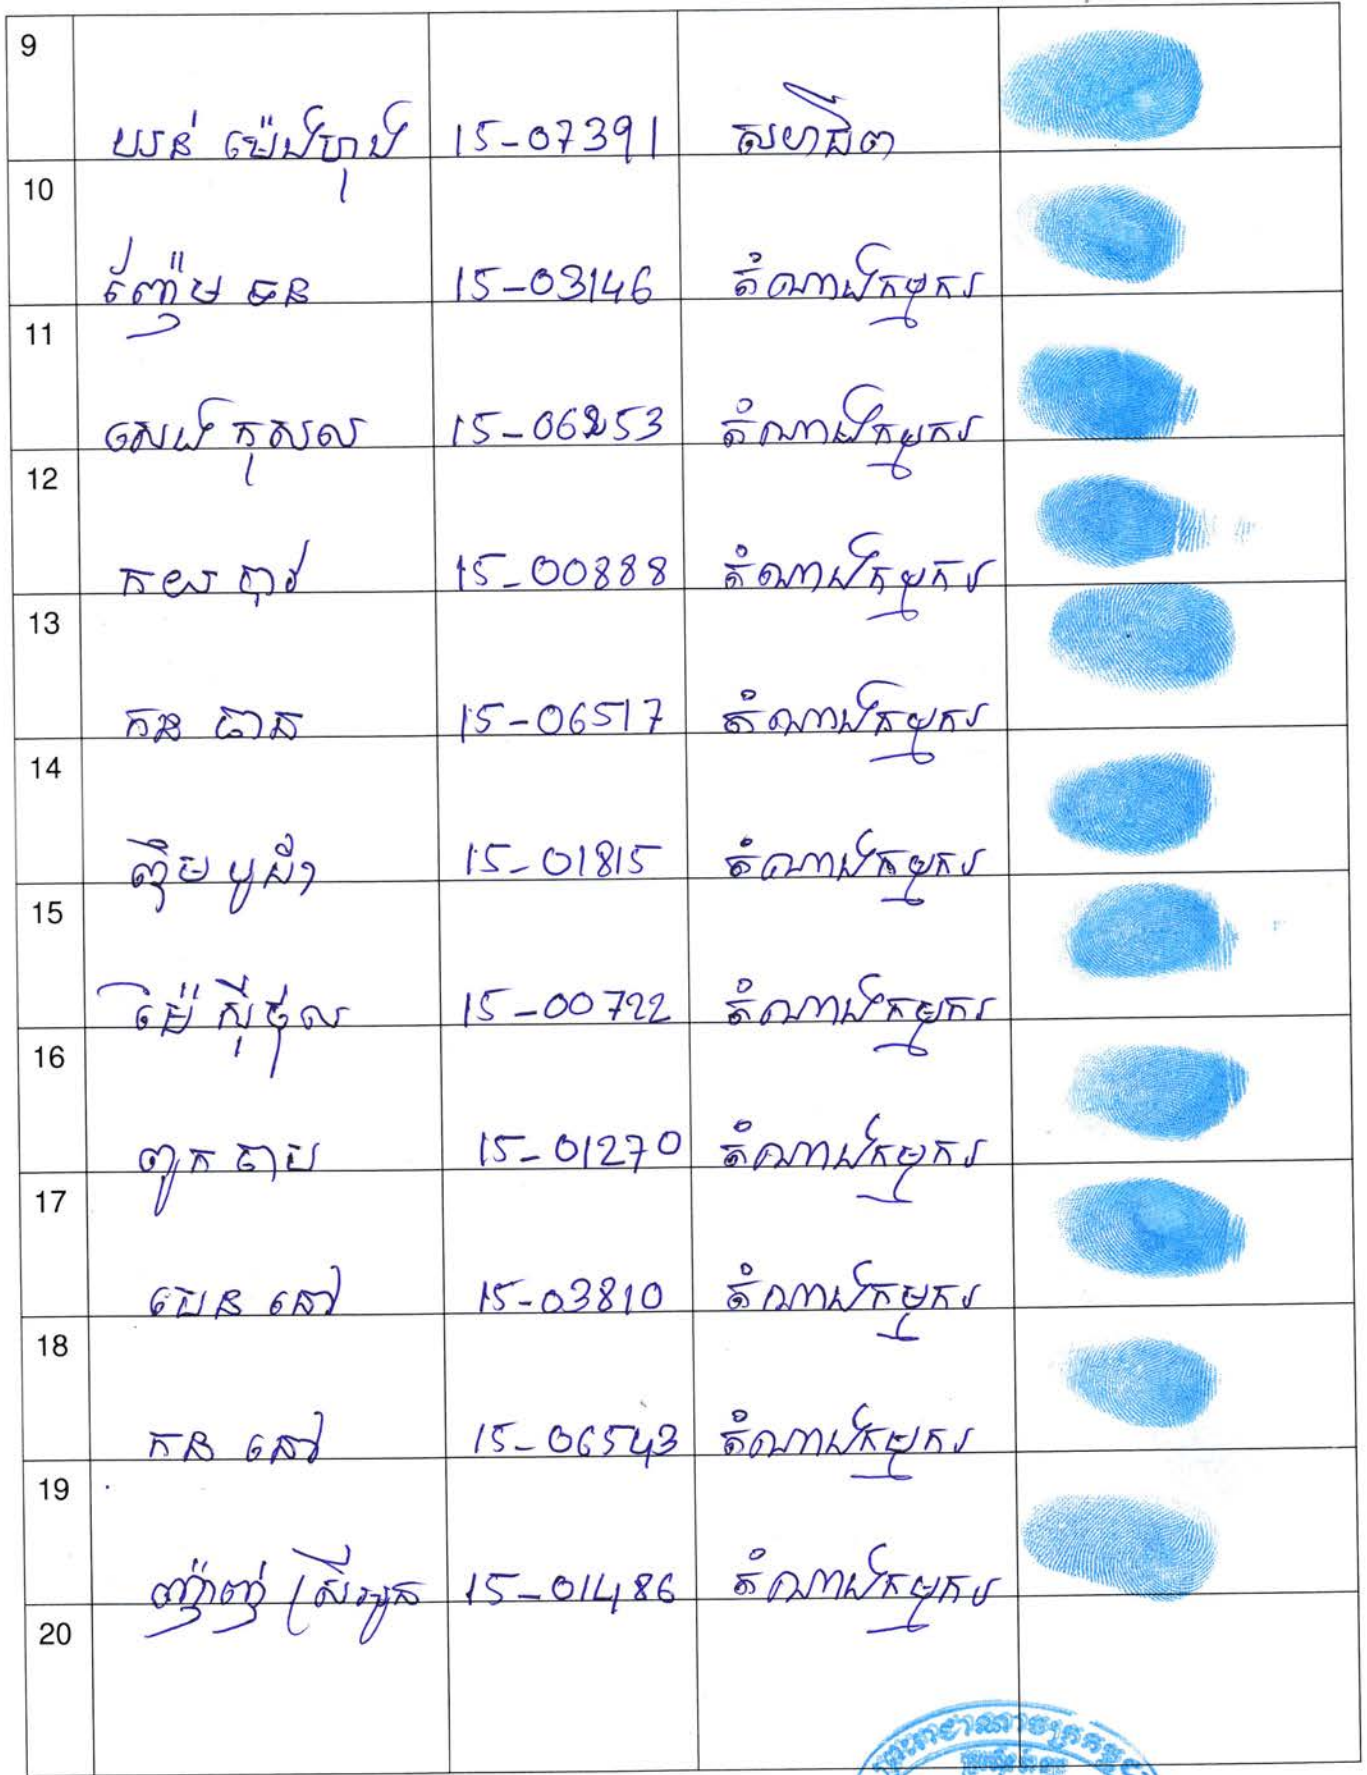 9
យន់ ម៉េងហុង 15-07391 សហជីព
10
ញ៉ែម ធន 15-03146 តំណាងកម្មករ
11
សេង កុសល 15-06253 តំណាងកម្មករ
12
កយ ចាវ 15-00888 តំណាងកម្មករ
13
កន ធាន 15-06517 តំណាងកម្មករ
14
ញឹម បូស៊ា 15-01815 តំណាងកម្មករ
15
ម៉ៃ ស៊ីថុល 15-00722 តំណាងកម្មករ
16
ពូក ចាប 15-01270 តំណាងកម្មករ
17
បេន នៅ 15-03810 តំណាងកម្មករ
18
កន នៅ 15-06543 តំណាងកម្មករ
19
ញ៉ាញ់ ស្រីអូន 15-01486 តំណាងកម្មករ
20
ព្រះរាជាណាចក្រកម្ពុជា